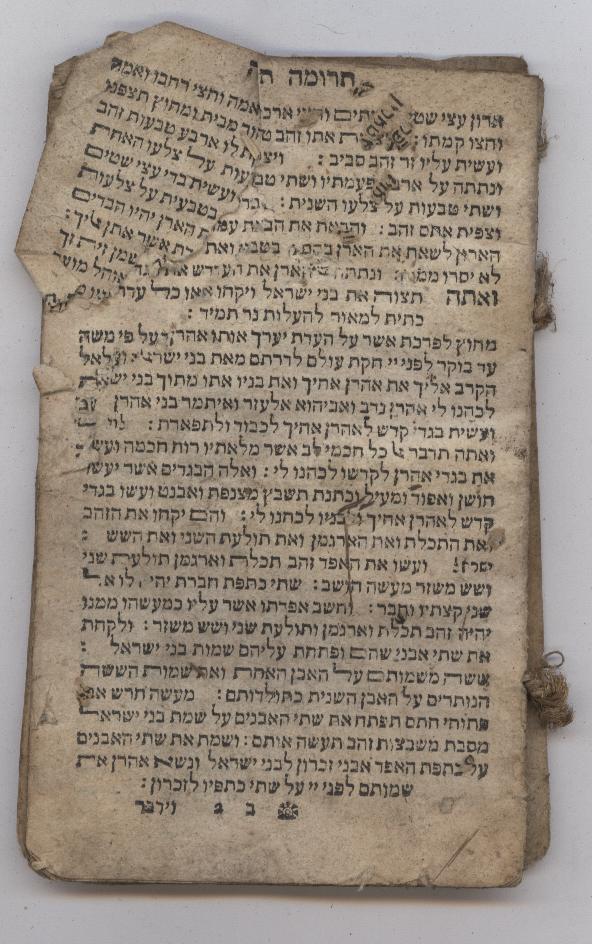 תרומה
ארון עצי אמה וחצי רחבו ואמה
וחצו קמתו : אתו זהב טהור מבית ומחוץ תצפנו
ועשית עליו זר זהב סביב : לו ארבע טבעות זהב
ונתתה על פעמתיו ושתי טבעות על צלעו האחת
ושתי טבעות על צלעו השנית : ועשית בדי עצי שטים
וצפית אתם זהב : והבאת את בטבעית על צלעות
הארון לשאת את הארן בהם : הארן יהיו הבדים
לא יסרו ונתתה אשר אתן
ואתה תצוה את בני ישראל ויקחו שמן זית זך
כתית למאור להעלות נר תמיד :
מחוץ לפרכת אשר על הערת יערך אותו אהרן על פי משה
עד בוקר לפני יי חקת עולם לדרתם מאת בני
הקרב אליך את אהרן אחיך ואת בניו אתו מתוך בני
לכהנו לי אהרן נדב ואביהוא אלעזר ואיתמר בני אהרן
ועשית בגדי קדש לאהרן אחיך לכבוד ולתפארת :
ואתה תדבר כל חכמי לב אשר מלאתיו רוח חכמה
את בגדי אהרן לקדשו לכהנו לי : ואלה הבגדים אשר יעשו
חושן ואפוד ומעיל וכתנת תשבץ מצנפת ואבנט ועשו בגדי
קדש לאהרן אחיך ובניו לכהנו לי : והם יקחו את הזהב
ואת התכלת ואת הארגמן ואת תולעת השני ואת השש :
ועשו את האפד זהב תכלת וארגמן תולעת שני
ושש משזר מעשה חושב : שתי כתפת חברת
שני קצתיו וחבר : וחשב אפדתו אשר עליו כמעשהו ממנו
יהיה זהב תכלת וארגמן ותולעת שני ושש משזר : ולקחת
את שתי אבני שהם ופתחת עליהם שמות בני ישראל :
ששה משמותם על האבן האחת ואת שמות הששה
הנותרים על האבן השנית כתולדותם : מעשה חרש
פתוחי חתם תפתח את שתי האבנים על שמת בני ישראל
מסבת משבצות זהב תעשה אותם : ושמת את שתי האבנים
על כתפת האפד אבני זכרון לבני ישראל ונשא אהרן את
שמותם לפני יי על שתי כתפיו לזכרון :
ב ג וידבר